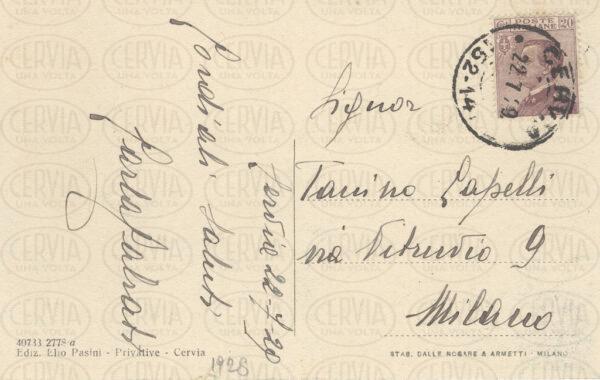 Cordiali Saluti
Cervia 22-7-29
Signor
Tanino Capelli
via Vitruvio 9
Milano
POSTE ITALIANE 20
CERVIA
22.7.29
40733 2778 a
Ediz. Elio Pasini - Privative - Cervia
1928
STAB. DALLE NOGARE & ARMETTI - MILANO
CERVIA
UNA VOLTA